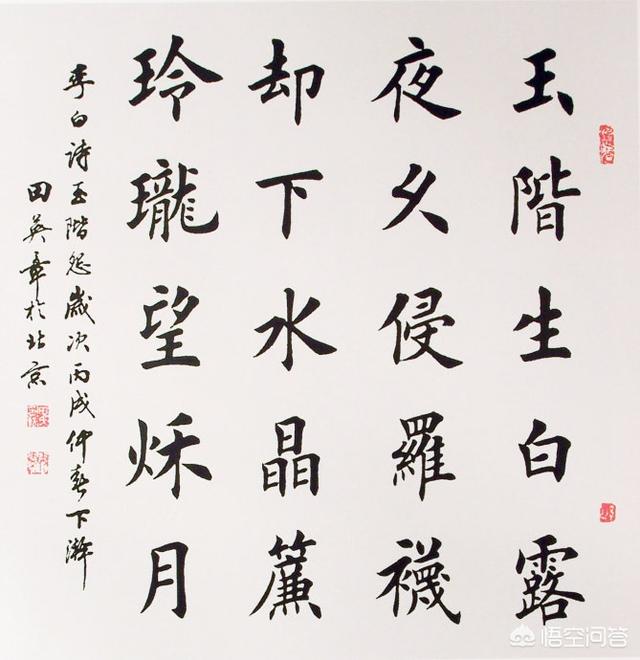 玉階生白露
夜久侵羅襪
却下水晶簾
玲瓏望秌月
李白詩玉階怨歲次丙戌仲春下澣
田英章於北京
悟空问答